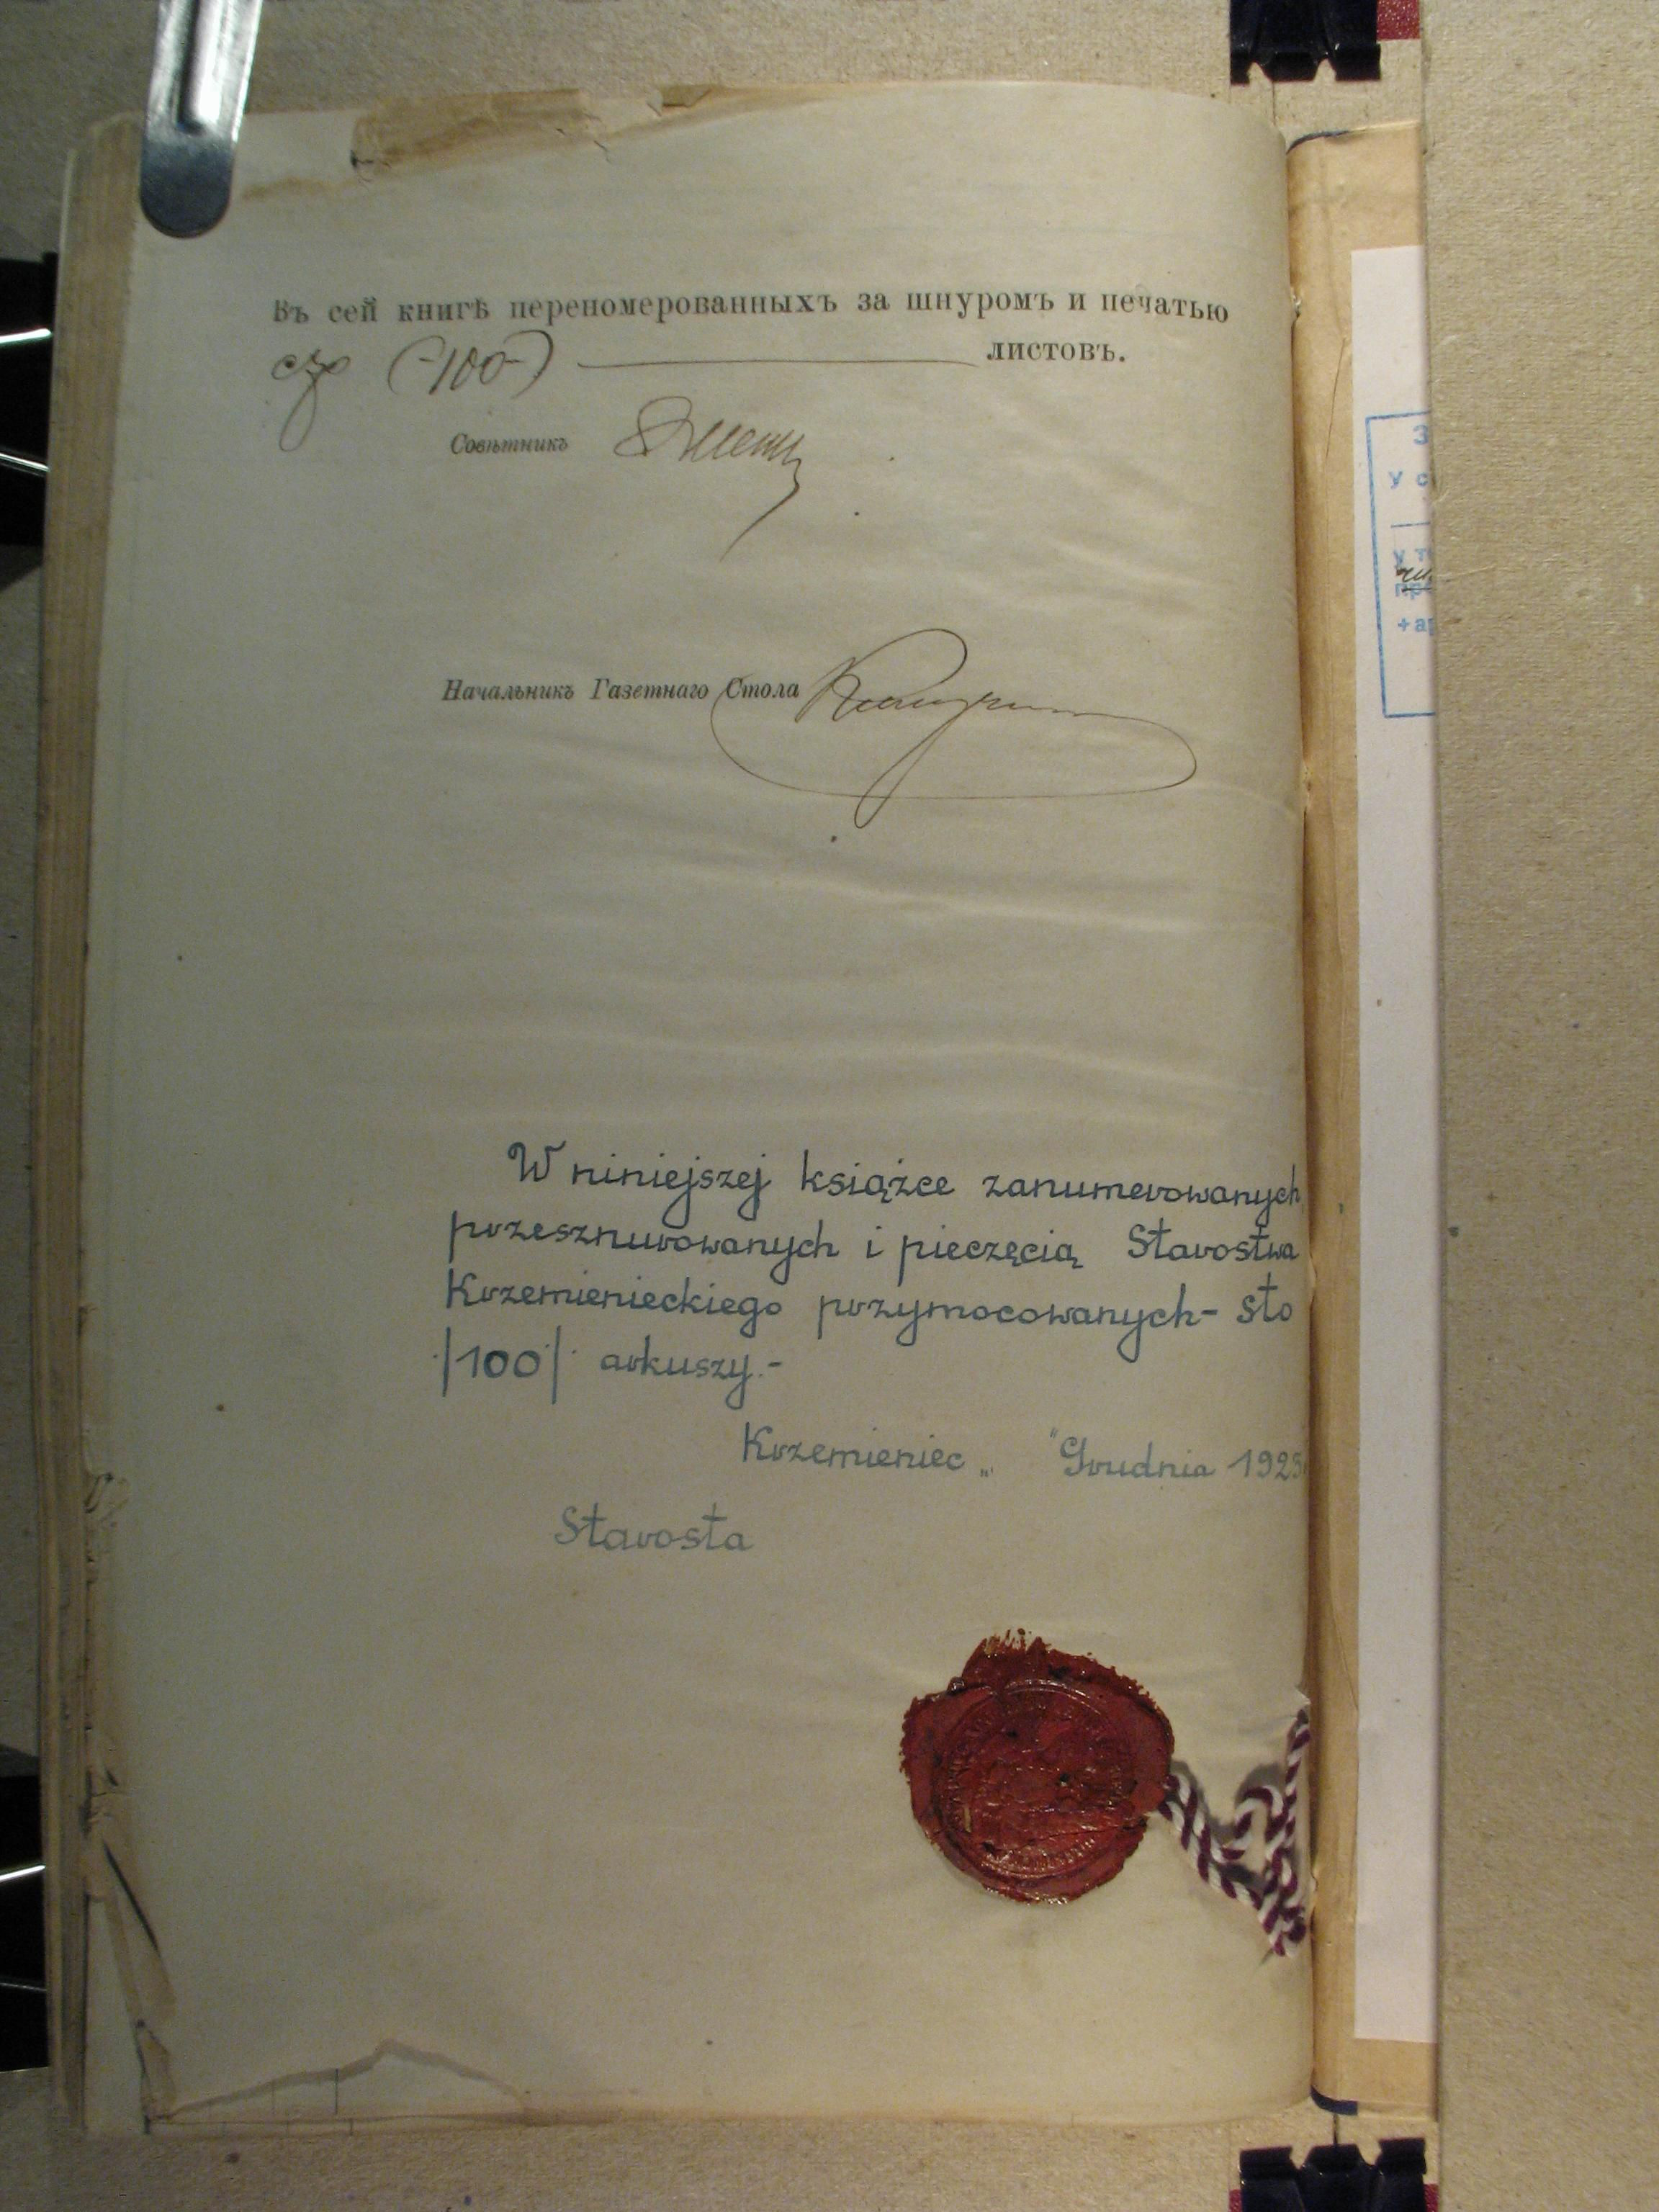 Въ сей книгѣ переномерованныхъ за шнуромъ и печатью
сто (-100-) листовъ.
Совѣтникъ
Начальникъ Газетнаго Стола
W niniejszej książce zanumerowanych
przesznurowanych i pieczęcią Starostwa
Krzemienieckiego przymocowanych- sto
/100/ arkuszy.-
Krzemieniec „ " Grudnia 192
Starosta
У